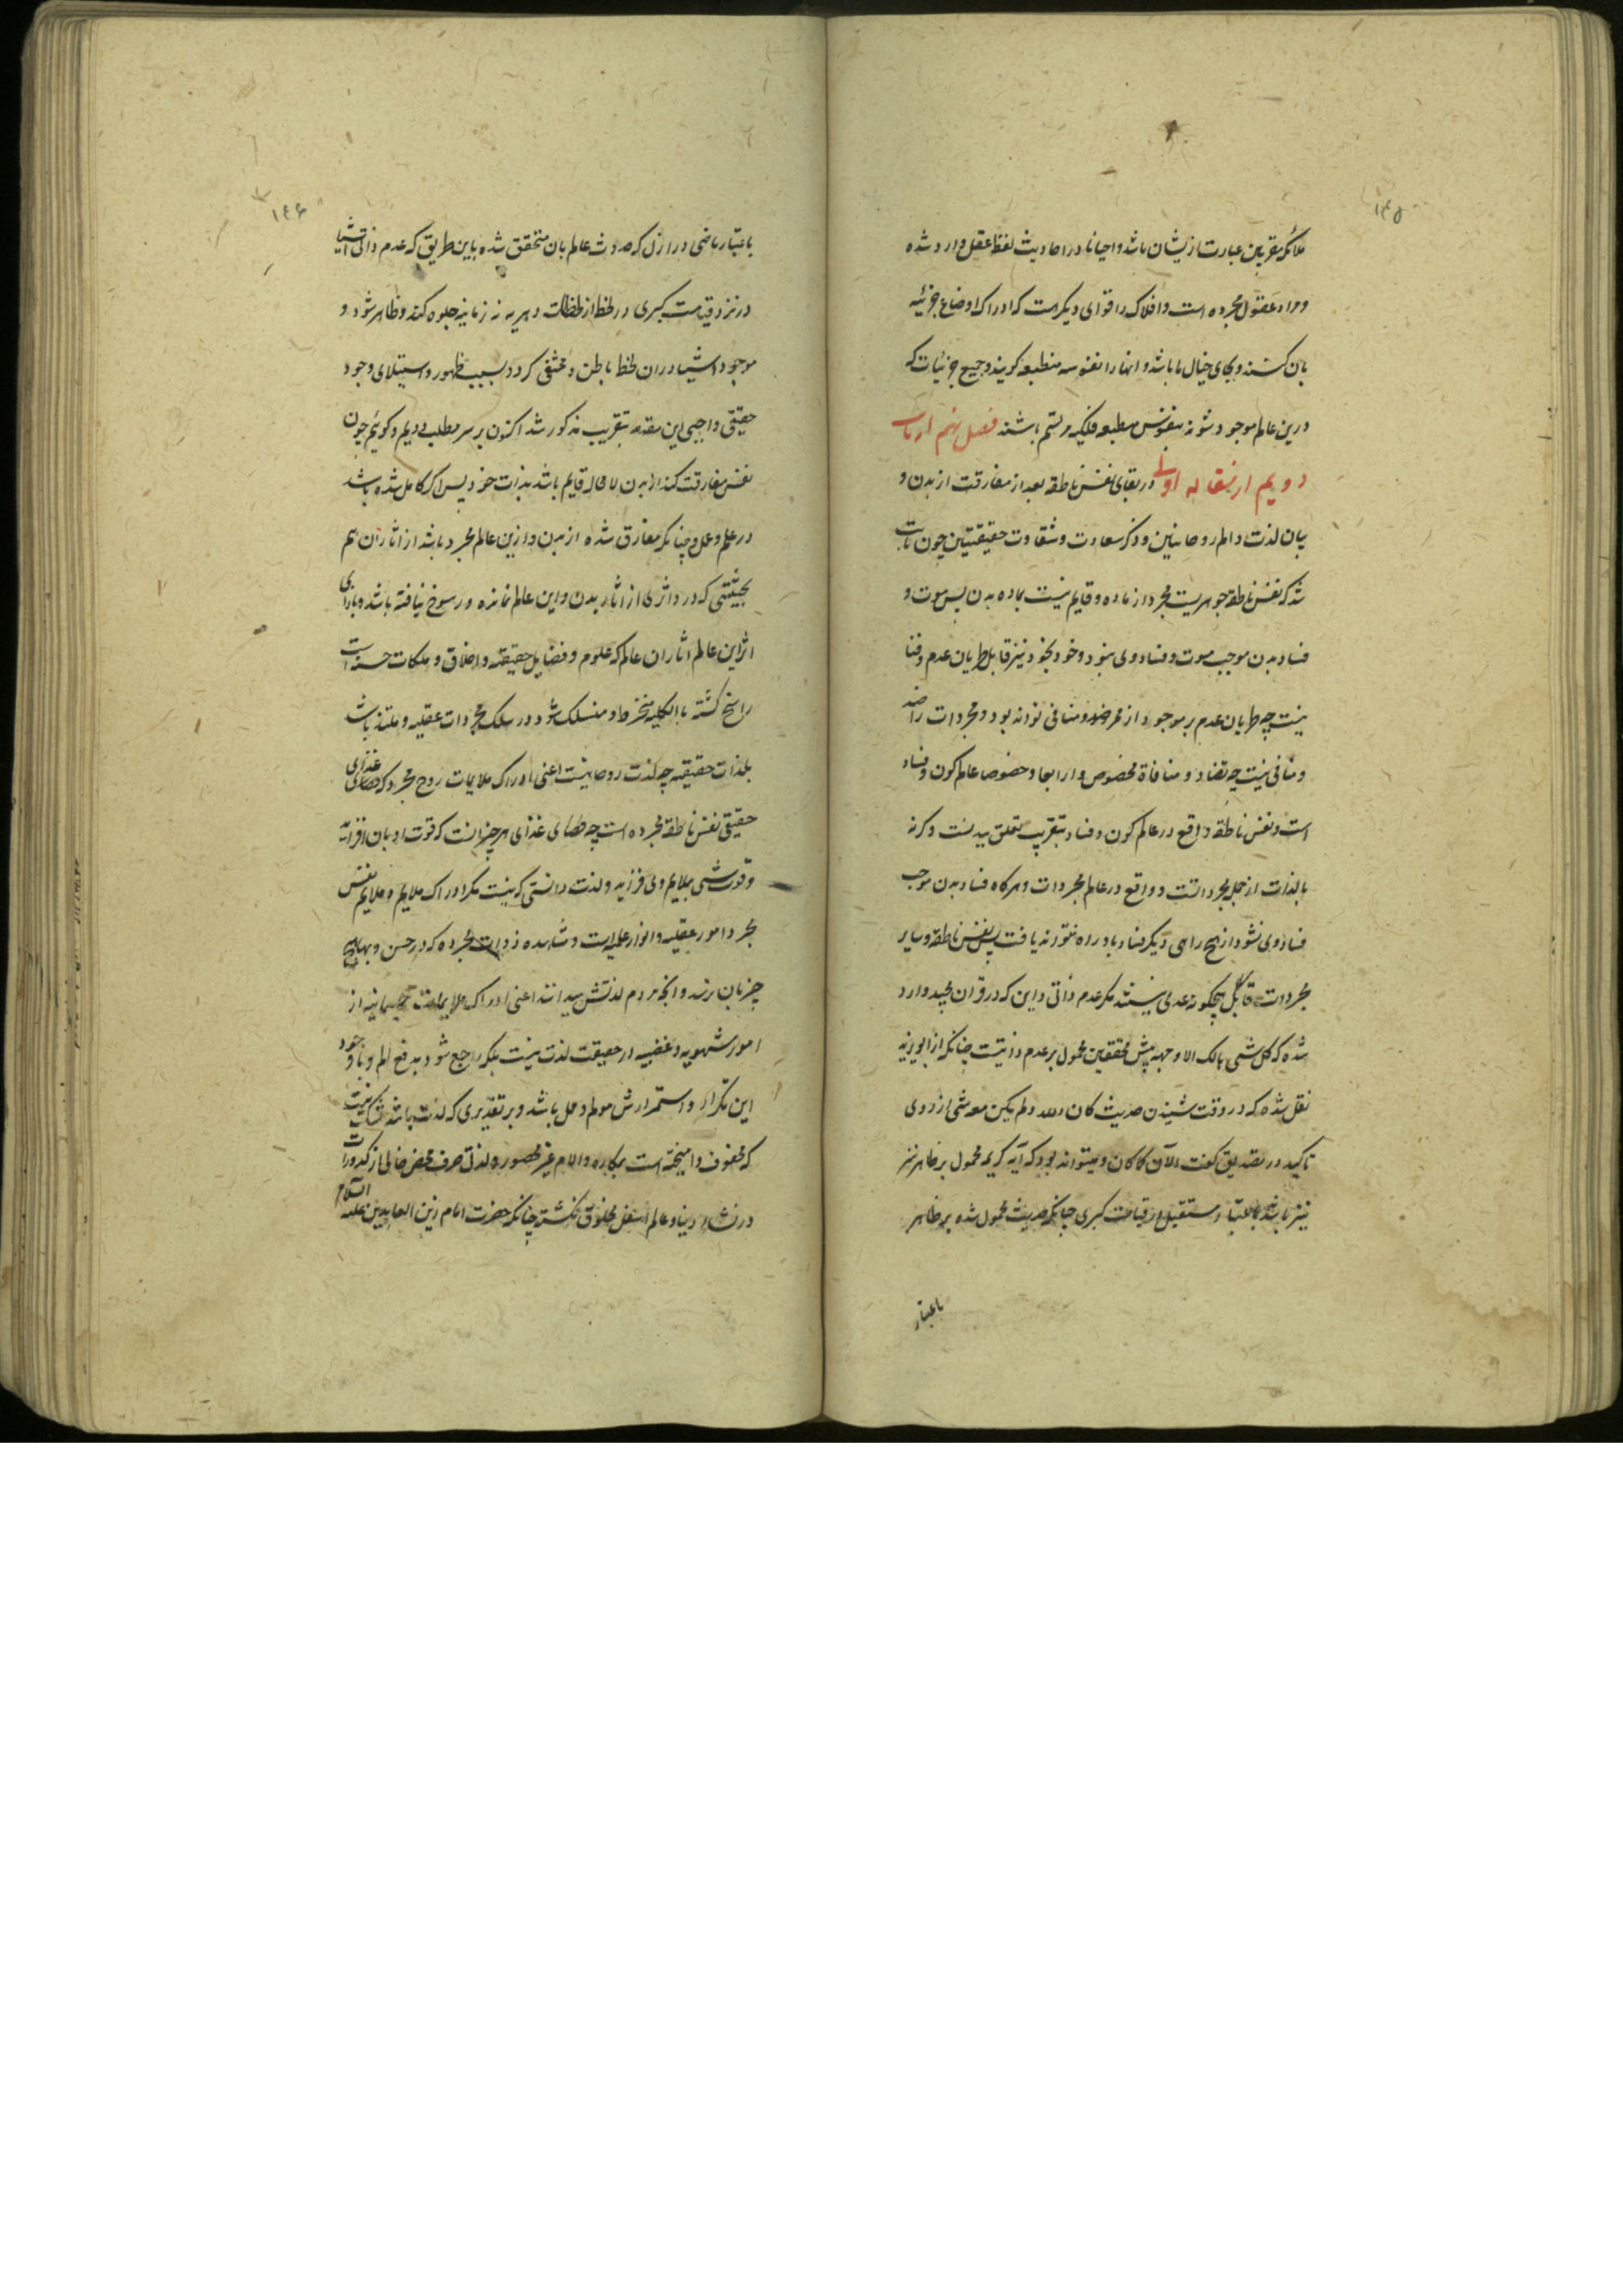 ۱۴۵
ملائکه مقربین عبارت از یشان باشد و احیانا در احادیث لفظ عقل وارد شده
و مراد عقول مجرده است و افلاک را قوای دیگرست که ادراک اوضاع جزئیه
بان کنند و بجای خیال ما باشد و انها را نفوسه منطبعه کویند و جمیع جزئیات که
درین عالم موجود شوند بنفوس منطبعه فلکیه مرتسم باشند فصل نهم از باب
دویم از مقاله اولی در بقای نفس ناطقه بعد از مفارقت از بدن و
بیان لذت و الم روحانیین و ذکر سعادت و شقاوت حقیقیتین چون ثابت
شد که نفس ناطقه جوهریست مجرد از ماده و قایم نیست بماده بدن پس موت و
فساد بدن موجب موت و فساد وی نبود و خود بخود نیز قابل طریان عدم و فنا
نیست چه طریان عدم بر موجود از ممر ضد و منافی تواند بود و مجردات را ضد
و منافی نیست چه تضاد و منافاة مخصوص دار ابعاد خصوصا عالم کون و فساد
است و نفس ناطقه واقع در عالم کون و فساد بتقریب تعلق ببدنست وکرنه
بالذات از جمله مجرداتست و واقع در عالم مجردات و هرکاه فساد بدن موجب
فساد وی نشود از هیچ راهی دیگر فساد باو راه نتواند یافت پس نفس ناطقه و سایر
مجردات قابل هیچکونه عدمی نیستند مکر عدم ذاتی و این که در قران مجید وارد
شده که کل شیی هالک الا وجهه پیش محققین محمول بر عدم ذاتیست چنانکه از ابو یزید
نقل شده که در وقت شنیدن حدیث کان الله و لم یکن معه شیی از روی
تاکید در تصدیق کفت الآن کما کان و میتواند بود که آیه کریمه محمول بر ظاهر نیز
نیز باشد باعتبار مستقبل از قیامت کبری چنانکه حدیث محمول شده بر ظاهر
باعتبار
۱۴۶
باعتبار ماضی در ازل که حدوث عالم بان متحقق شده باین طریق که عدم ذاتی اشیا
در نزد قیامت کبری در لحظ از لحظات دهریه نه زمانیه جلوه کند و ظاهر شود و
موجود اشیا در ان لحظ باطن و مختفی کردد بسبب ظهور و استیلای وجود
حقیقی واجبی این مقدمه بتقریب مذکور شد اکنون بر سر مطلب رویم و کوئیم چون
نفس مفارقت کند از بدن لا محاله قایم باشد بذات خود پس اکر کامل شده باشد
در علم و عمل و چنانکه مفارق شده از بدن و ازین عالم مجرد باشد از اثار ان هم
بحیثیتی که در و اثری از اثار بدن و این عالم نمانده و رسوخ نیافته باشد و بازای
اثر این عالم اثار ان عالم که علوم و فضایل حقیقه و اخلاق و ملکات حسنه است
راسخ کشته بالکلیه منخرط و منسلک شود در سلک مجردات عقلیه و ملتذ باشد
بلذات حقیقیه چه لذت روحانیست اعنی ادراک ملایمات روح مجرد که غذای
حقیقی نفس ناطقه مجرده است چه غذای هر چیز انست که قوت او بان افزاید
و قوت شیی بملایم وی فزاید و لذت دانستی که نیست مکر ادراک ملایم و ملایم نفس
مجرد امور عقلیه و انوار علمیه است و مشاهده ذوات مجرده که در حسن و بها هیچ
چیز بان نرسد و انچه مردم لذتش میدانند اعنی ادراک ملایمات جسمانیه از
امور شهویه و غضبیه در حقیقت لذت نیست بلکه راجع شود بدفع الم و با وجود
این تکرار و استمرارش مولم و ممل باشد و بر تقدیری که لذت باشد شک نیست
که محفوف و امیخته است بمکاره و الام غیر محصوره و لذتی صرف محض خالی از کدورات
در نشاه دنیا و عالم اسفل مخلوق نکشته چنانکه حضرت امام زین العابدین علیه السلام